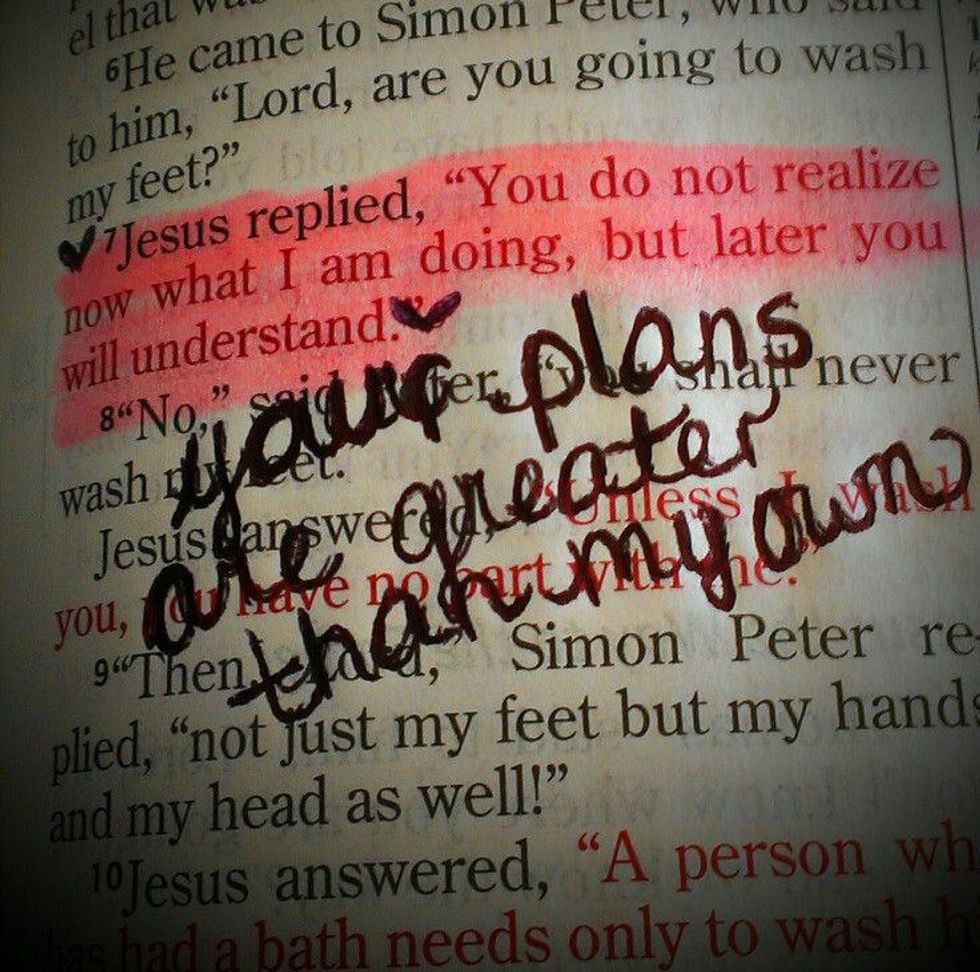 el that
6He came to Simon Peter, who said
to him, “Lord, are you going to wash
my feet?”
7Jesus replied, “You do not realize
now what I am doing, but later you
will understand.”
your plans
are greater
than my own
8“No,” said Peter, “you shall never
wash my feet.”
Jesus answered, “Unless I wash
you, you have no part with me.”
9“Then, Lord,” Simon Peter re
plied, “not just my feet but my hand
and my head as well!”
10Jesus answered, “A person wh
has had a bath needs only to wash h